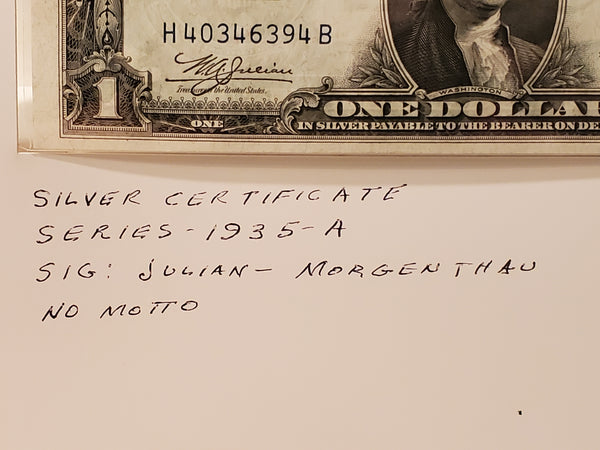 H40346394B
W A Julian
Treasurer of the United States.
1
ONE
WASHINGTON
ONE DOLLA
IN SILVER PAYABLE TO THE BEARER ON DE
SILVER CERTIFICATE
SERIES-1935-A
SIG: JULIAN- MORGENTHAU
NO MOTTO